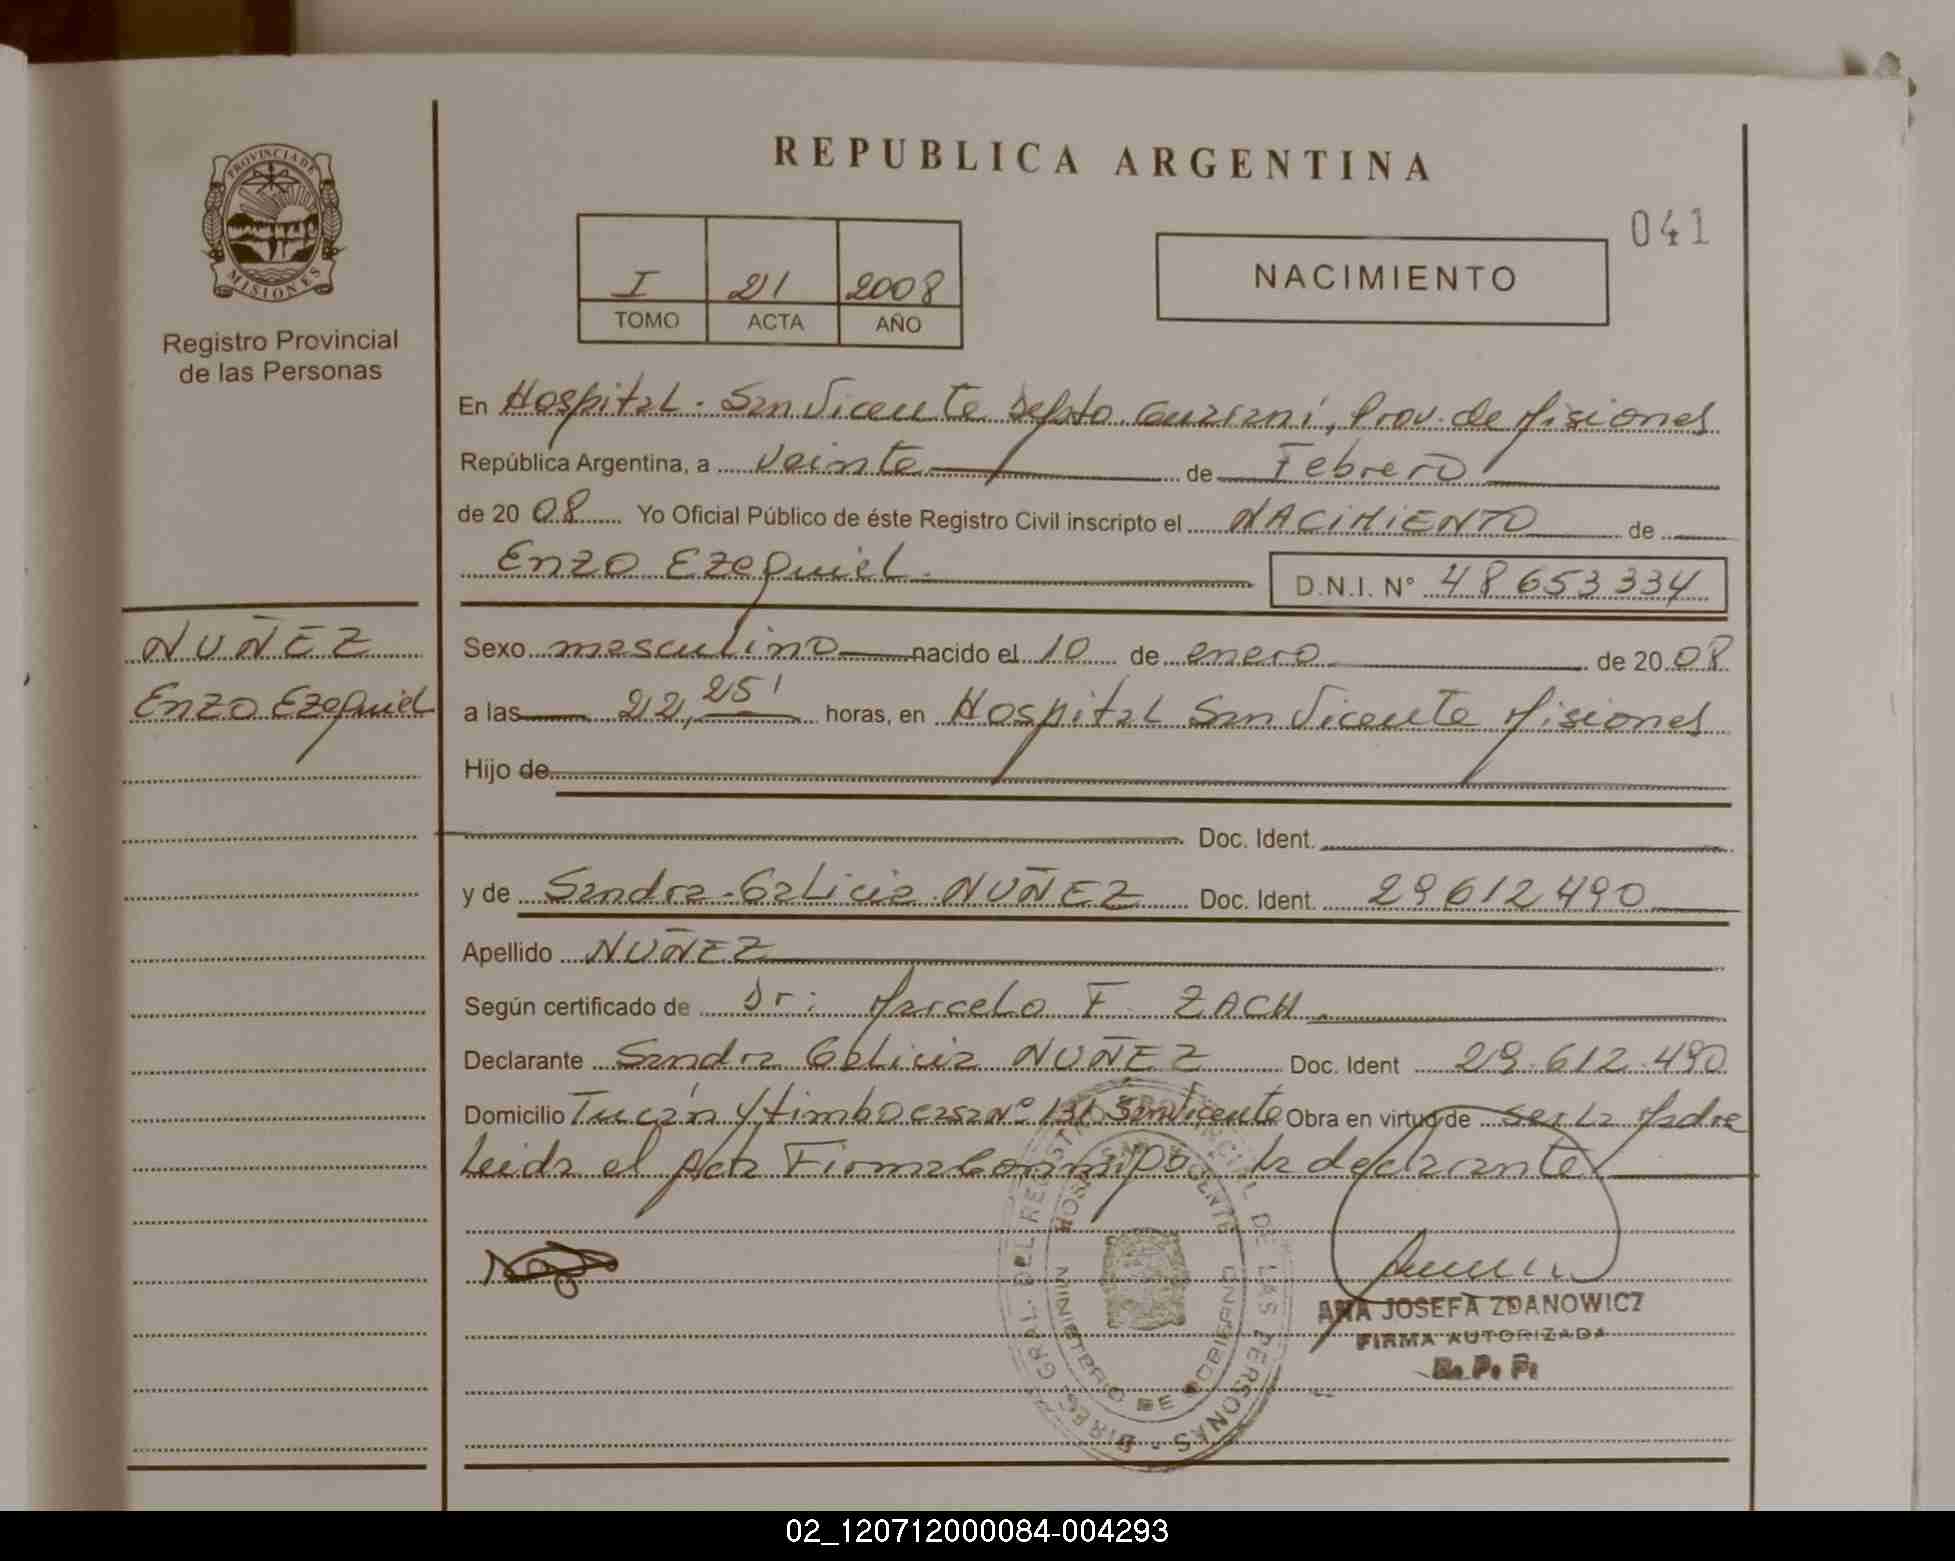 REPUBLICA ARGENTINA
041
PROVINCIA DE
MISIONES
Registro Provincial
de las Personas
I 21 2008
TOMO ACTA AÑO
NACIMIENTO
En Hospital - San Vicente Depto. Guarani, Prov. de Misiones
República Argentina, a veinte de Febrero
de 2008 Yo Oficial Público de éste Registro Civil inscripto el NACIMIENTO de
Enzo Ezequiel. D.N.I. N° 48653334
NUÑEZ
Enzo Ezequiel
Sexo masculino nacido el 10 de enero de 2008
a las 22,25' horas, en Hospital San Vicente Misiones
Hijo de
Doc. Ident.
y de Sandra Galicia NUÑEZ Doc. Ident. 29612490
Apellido NUÑEZ
Según certificado de Dr: Marcelo F. ZACH
Declarante Sandra Galicia NUÑEZ Doc. Ident 29.612.490
Domicilio Tucán y timbo casa N° 131 San Vicente Obra en virtud de ser la Madre
Leida el Acta Firma Conmigo la declarante
DIREC. GRAL. DEL REGISTRO PROVINCIAL DE LAS PERSONAS
HOSP. SAN VICENTE
MINISTERIO DE GOBIERNO
ANA JOSEFA ZDANOWICZ
FIRMA AUTORIZADA
R. P. P.
02_120712000084-004293